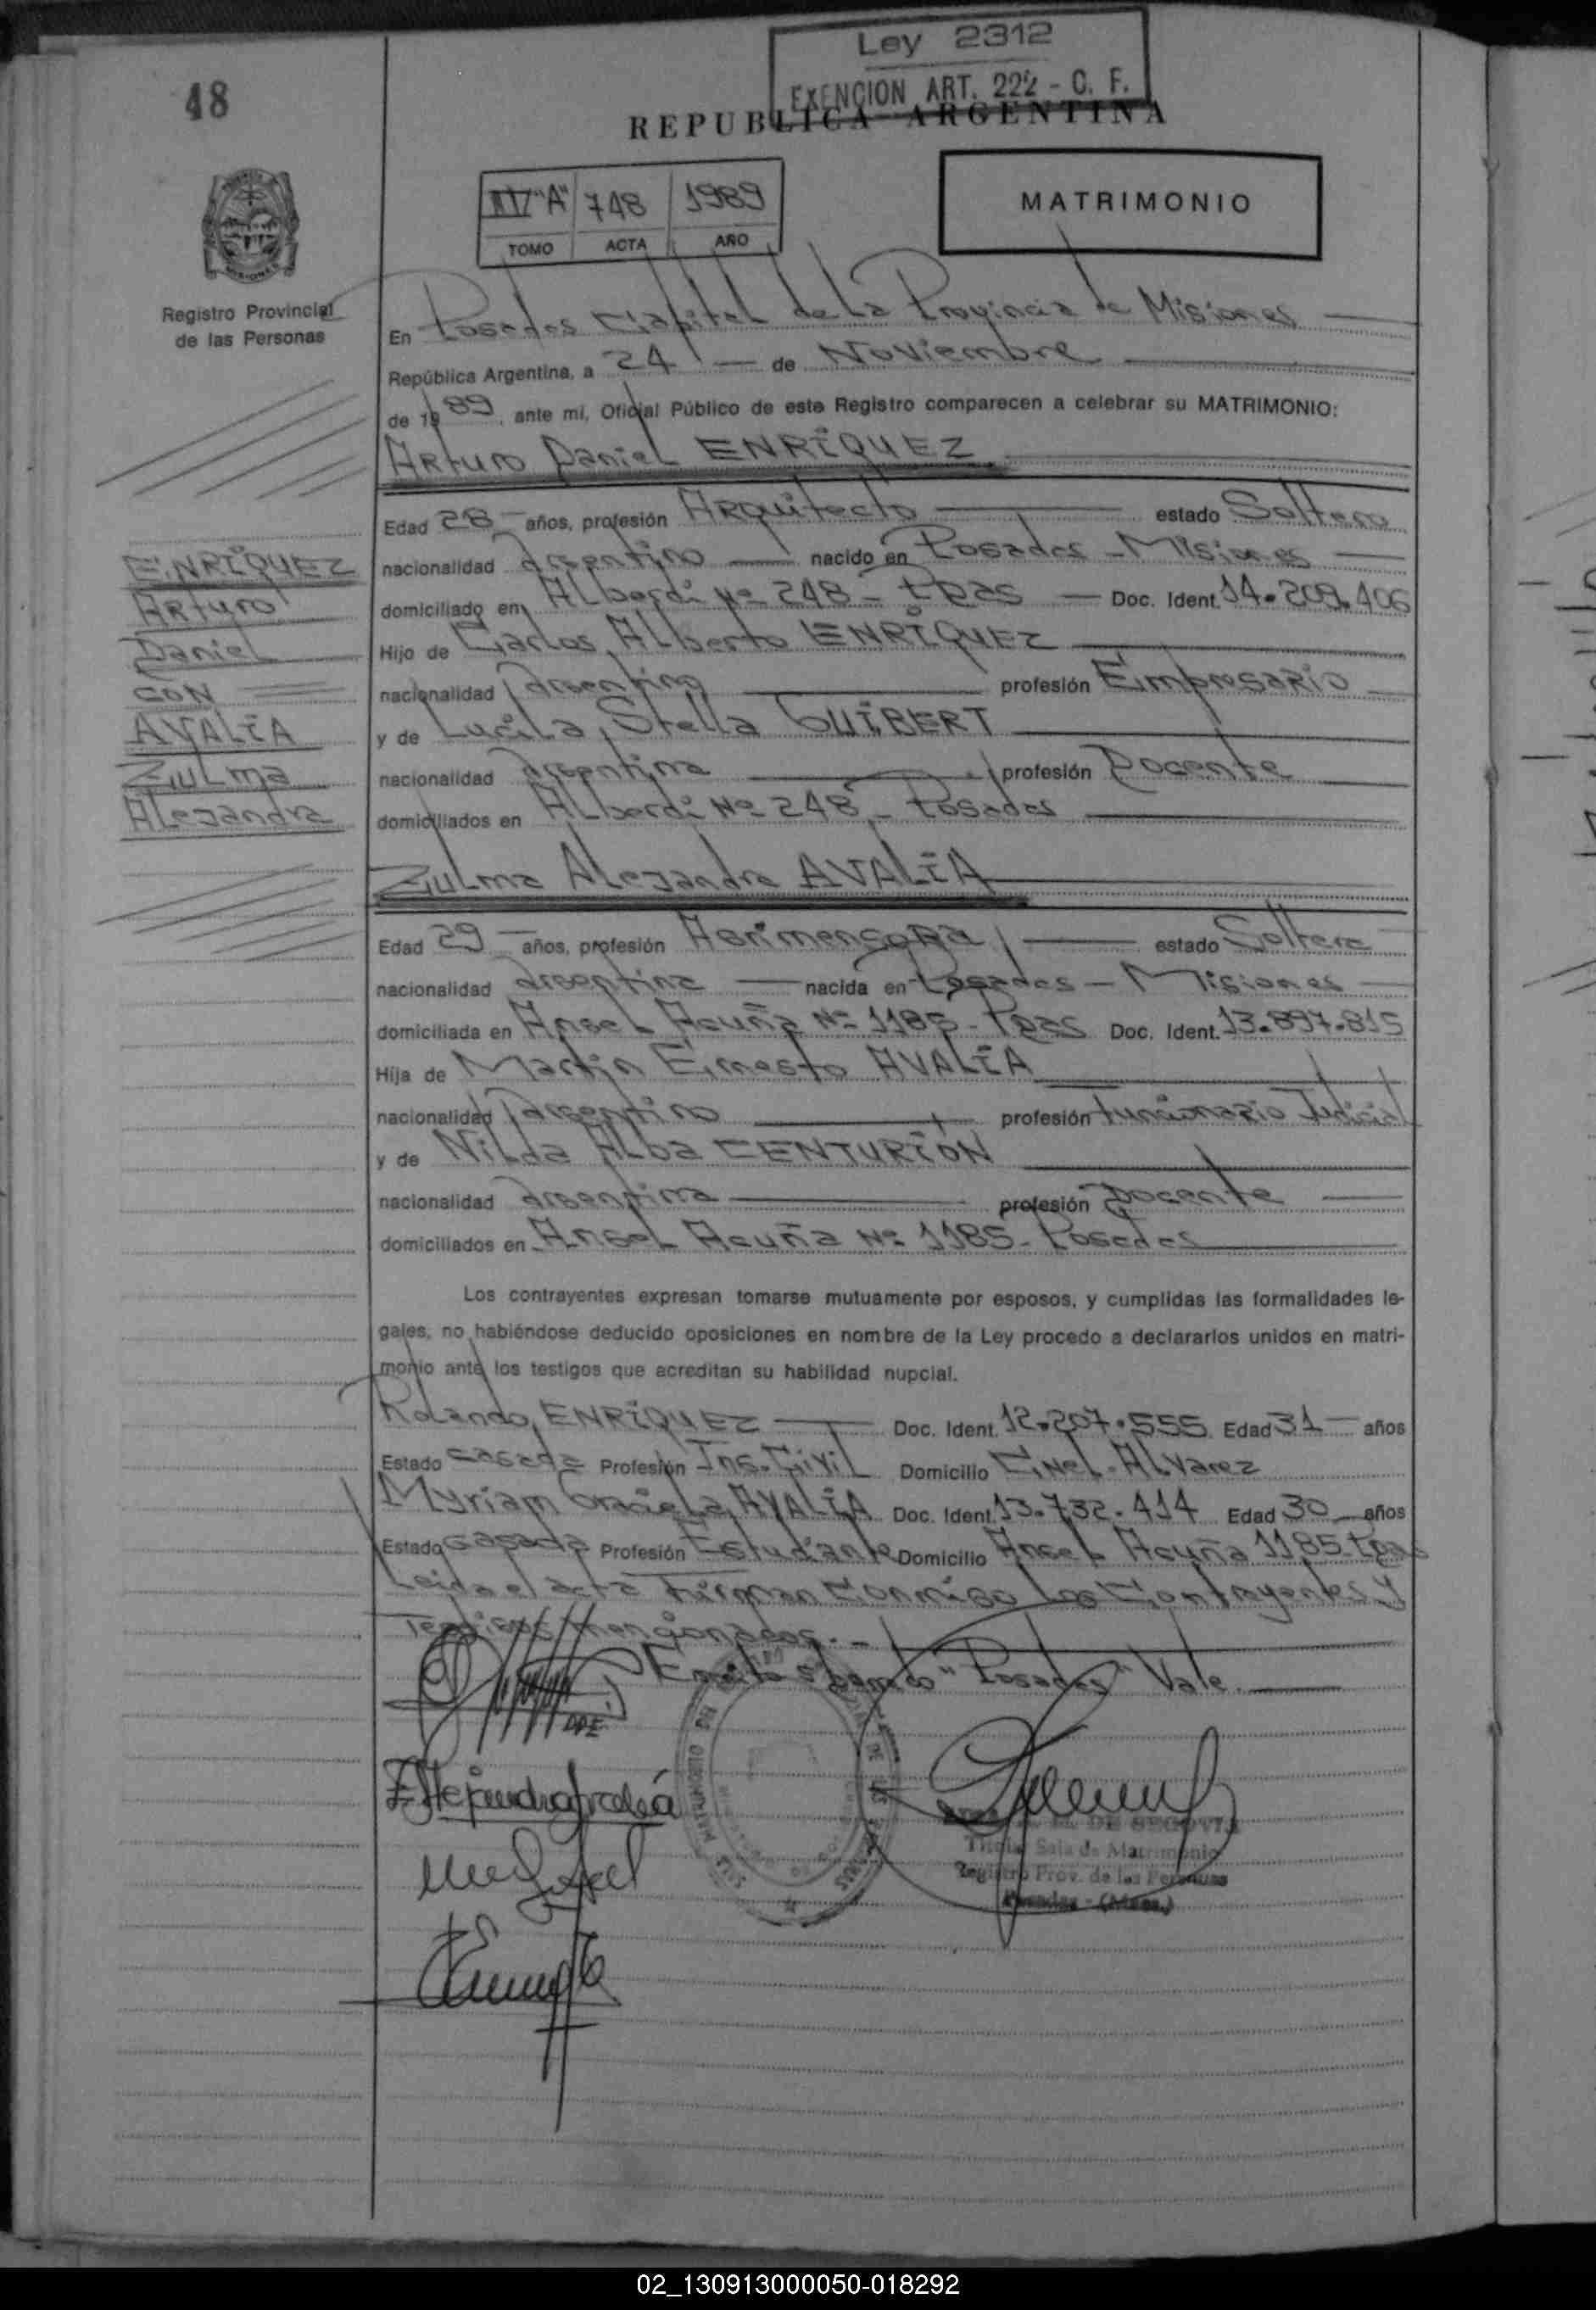 Ley 2312
EXENCION ART. 222 - C. F.
48
REPUBLICA ARGENTINA
IV "A" 748 1989
TOMO ACTA AÑO
MATRIMONIO
MISIONES
Registro Provincial
de las Personas
En Posadas Capital de La Provincia de Misiones
República Argentina, a 24 de Noviembre
de 1989, ante mí, Oficial Público de este Registro comparecen a celebrar su MATRIMONIO:
Arturo Daniel ENRIQUEZ
Edad 28 años, profesión Arquitecto estado Soltero
nacionalidad Argentino nacido en Posadas - Misiones
domiciliado en Alberdi Nº 248 - Pdas Doc. Ident. 14.209.406
Hijo de Carlos Alberto ENRIQUEZ
nacionalidad Argentino profesión Empresario
y de Lucila Stella GUIBERT
nacionalidad Argentina profesión Docente
domiciliados en Alberdi Nº 248 - Posadas
ENRIQUEZ
Arturo
Daniel
CON
AVALIA
Zulma
Alejandra
Zulma Alejandra AVALIA
Edad 29 años, profesión Agrimensora estado Soltera
nacionalidad Argentina nacida en Posadas - Misiones
domiciliada en Angel Acuña Nº 1185 - Pdas Doc. Ident. 13.897.815
Hija de Martin Ernesto AVALIA
nacionalidad Argentino profesión Funcionario Judicial
y de Nilda Alba CENTURIÓN
nacionalidad Argentina profesión Docente
domiciliados en Angel Acuña Nº 1185 - Posadas
Los contrayentes expresan tomarse mutuamente por esposos, y cumplidas las formalidades le-
gales, no habiéndose deducido oposiciones en nombre de la Ley procedo a declararlos unidos en matri-
monio ante los testigos que acreditan su habilidad nupcial.
Rolando ENRIQUEZ Doc. Ident. 12.207.555 Edad 31 años
Estado casado Profesión Ing. Civil Domicilio Cnel. Alvarez
Myriam Graciela AVALIA Doc. Ident. 13.732.414 Edad 30 años
Estado Casada Profesión Estudiante Domicilio Angel Acuña 1185 Pdas
Leida el acta Firman Conmigo Los Contrayentes y
Testigos mencionados. -
"Posadas" Vale.
DE SEGOVIA
Titular Sala de Matrimonio
Registro Prov. de las Personas
Posadas - (Mnes.)
02_130913000050-018292